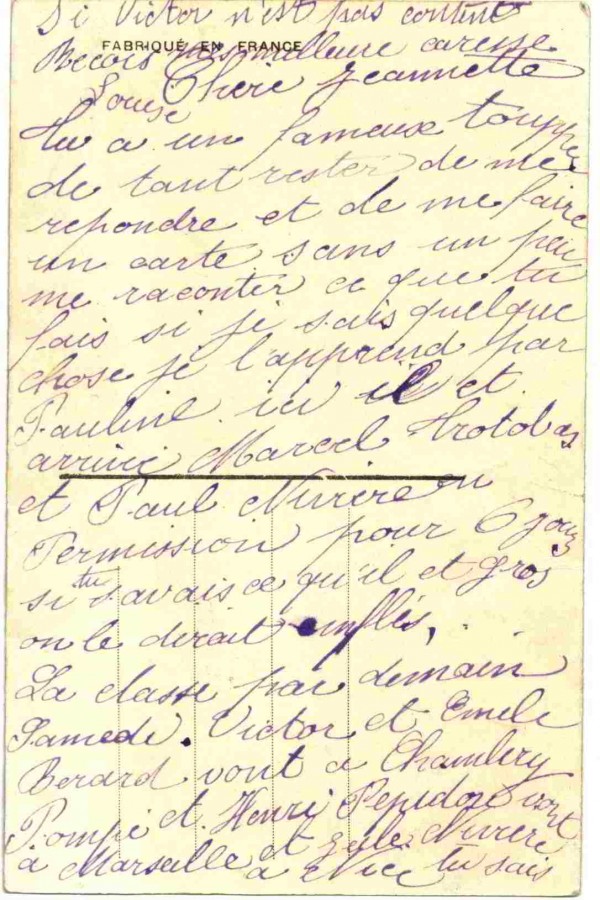 Si Victor n'est pas content
FABRIQUÉ EN FRANCE
Recois meilleure caresse
Louise
Chere Jeannette
tu a un fameux touppé
de tant rester de me
repondre et de me faire
un carte sans un peu
me raconter ce que tu
fais si je sais quelque
chose je l'apprend par
Pauline. ici il et
arrivé Marcel Trotobas
et Paul en
Permission pour 6 jours
si tu savais ce qu'il et gros
on le dirait enflés,
La classe par demain
Samedi. Victor et Emile
Berard vont a Chambery
Pompé et Henri vont
a Marseille et
a Nice tu sais